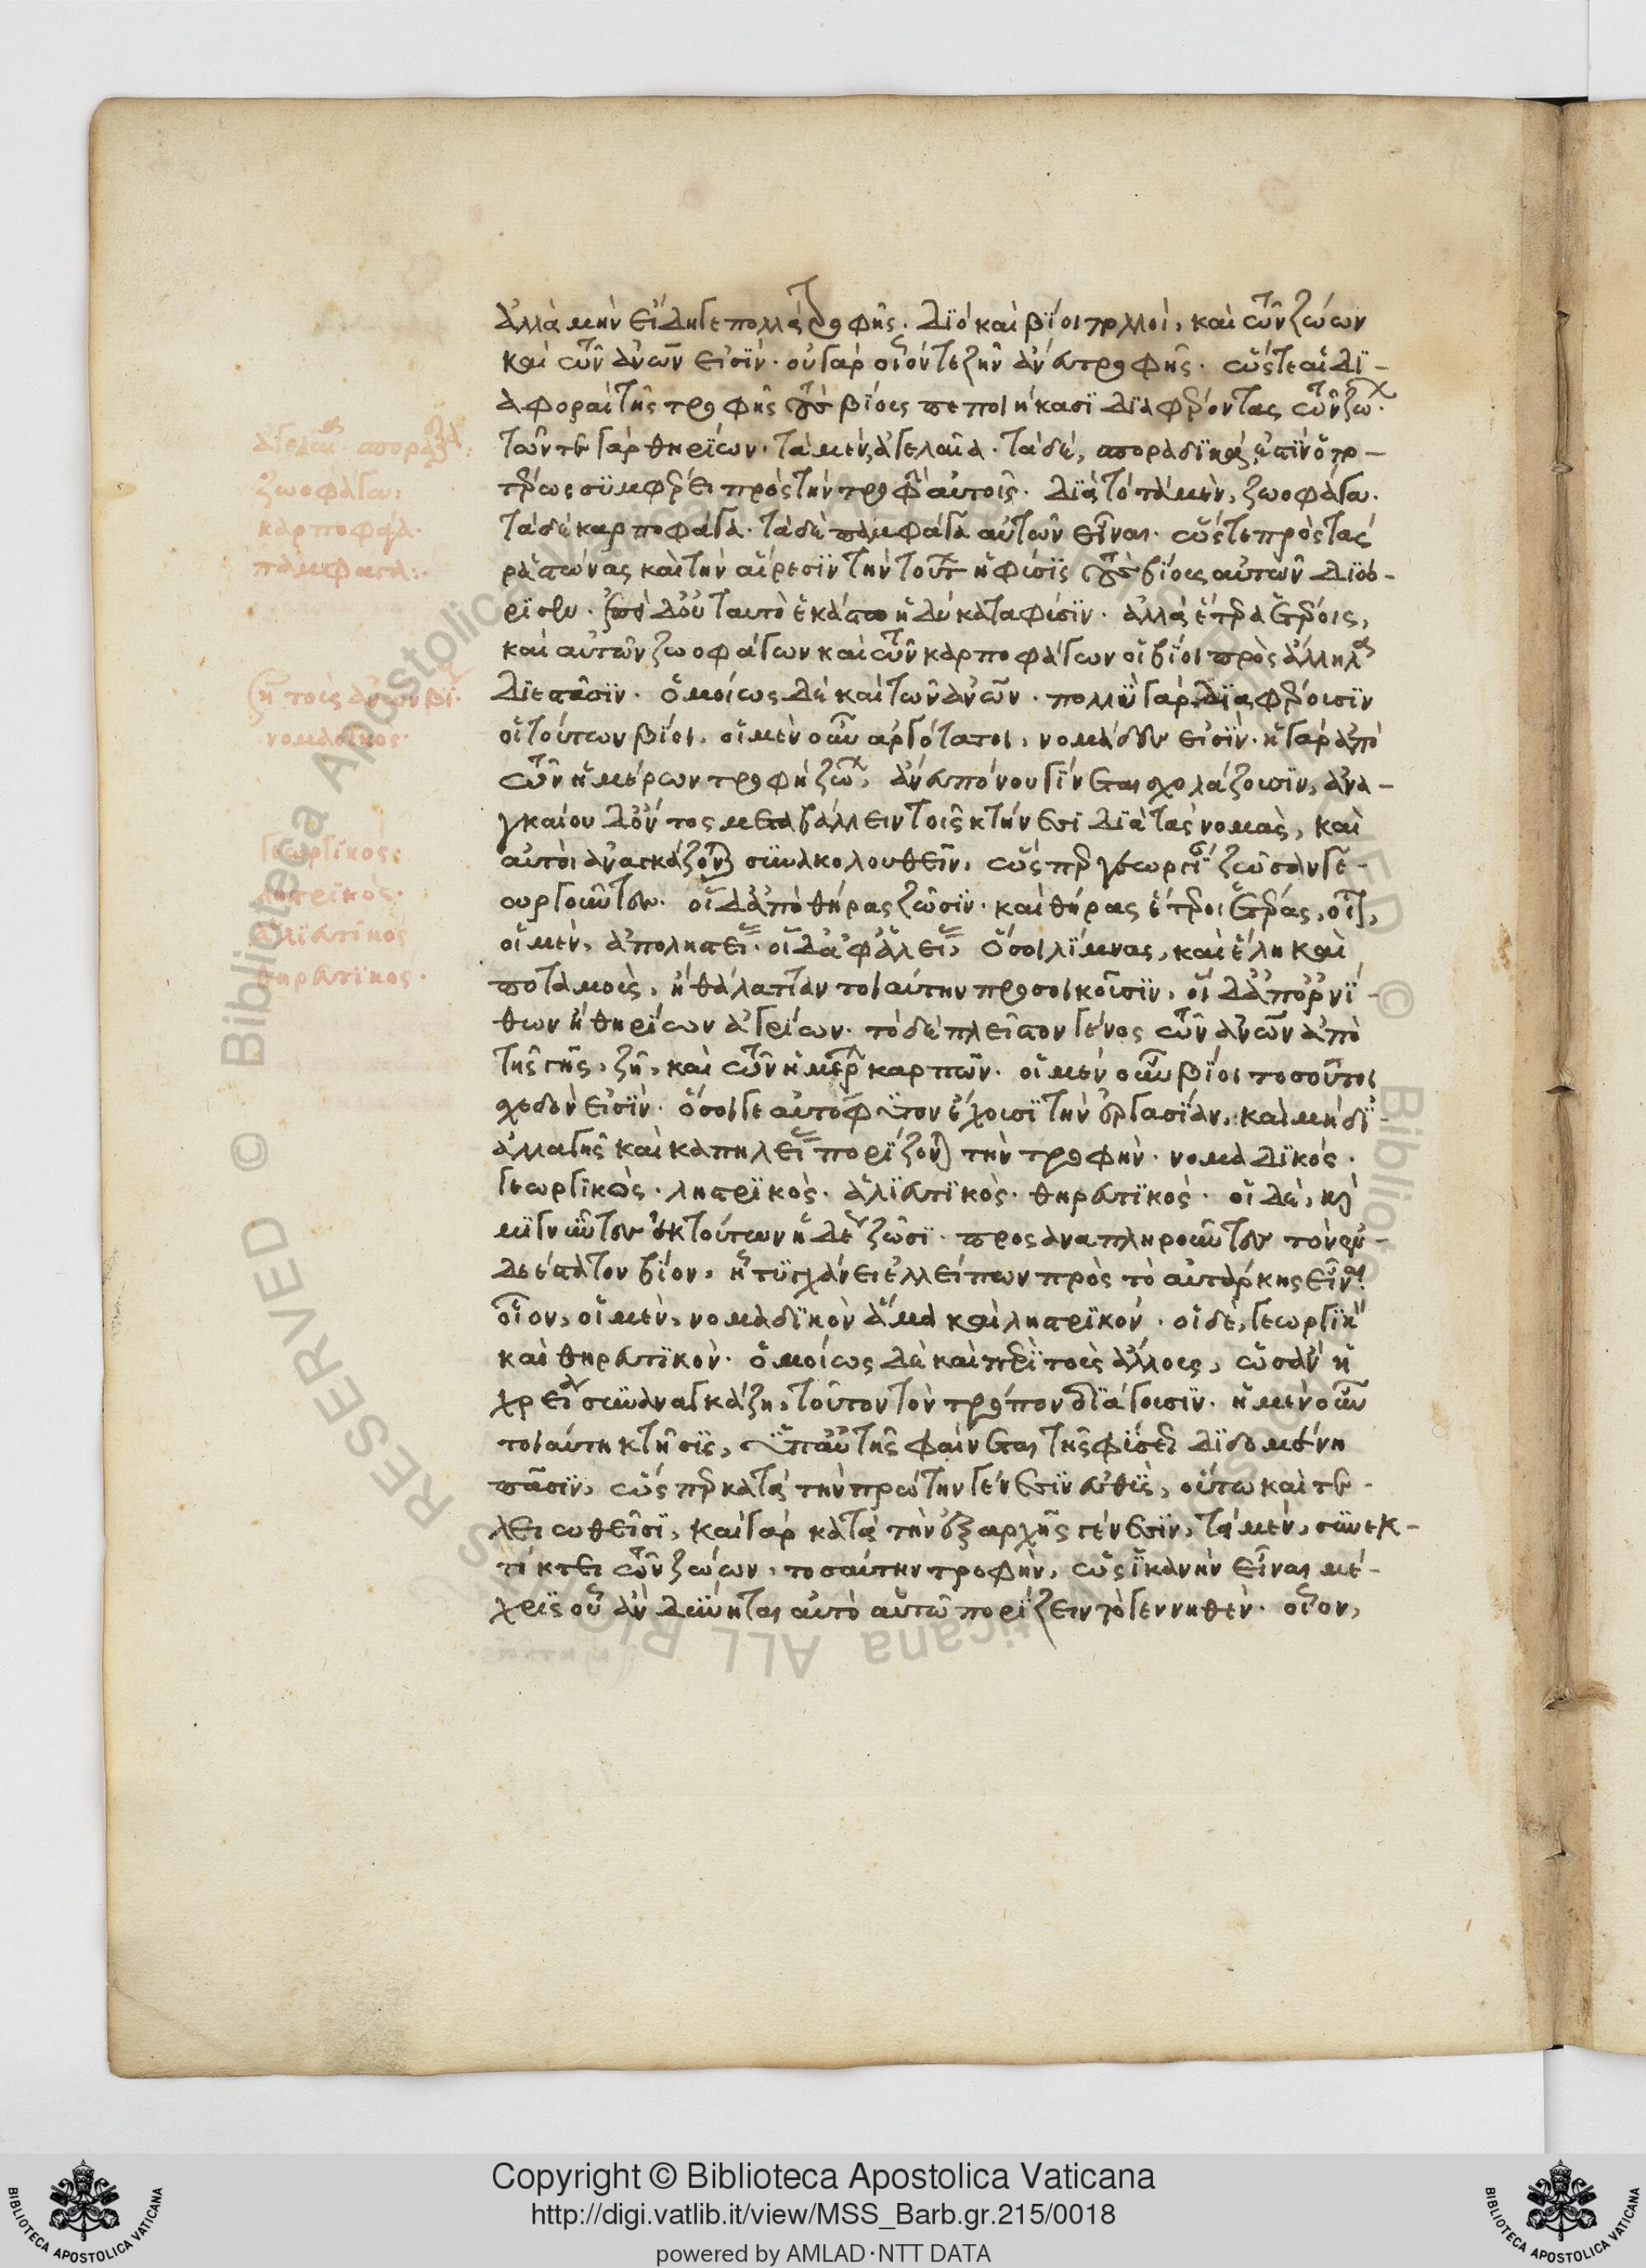 ἀλλὰ μὴν εἴδη γε πολλὰ τροφῆς. διὸ καὶ βίοι πολλοὶ, καὶ τῶν ζώων
καὶ τῶν ἀνων εἰσίν. οὐ γὰρ οἷόν τε ζῆν ἄνευ τροφῆς. ὥστε αἱ δι-
αφοραὶ τῆς τροφῆς τοὺς βίους πεποιήκασι διαφέροντας τῶν ζώων.
τῶν τε γὰρ θηρίων. τὰ μὲν, ἀγελαῖα. τὰ δὲ, σποραδικά ἐστιν ὁπο-
τέρως συμφέρει πρὸς τὴν τροφὴν αὐτοῖς. διὰ τὸ τὰ μὲν, ζωοφάγα.
τὰ δὲ καρποφάγα. τὰ δὲ παμφάγα αὐτῶν εἶναι. ὥστε πρὸς τὰς
ῥαστώνας καὶ τὴν αἵρεσιν τὴν τούτων ἡ φύσις τοὺς βίους αὐτῶν διώ-
ρισεν. ἐπεὶ δ' οὐ ταυτὸ ἑκάστω ἡδὺ κατὰ φύσιν. ἀλλὰ ἕτερα ἑτέροις,
καὶ αὐτῶν ζωοφάγων καὶ τῶν καρποφάγων οἱ βίοι πρὸς ἄλληλα
διεστᾶσιν. ὁμοίως δὲ καὶ τῶν ἀνων. πολὺ γὰρ διαφέρουσιν
οἱ τούτων βίοι. οἱ μὲν οὖν ἀργότατοι, νομάδες εἰσίν. ἡ γὰρ ἀπὸ
τῶν ἡμέρων τροφὴ ζώων, ἄνευ πόνου γίνεται σχολάζουσιν, ἀνα-
γκαίου δ' ὄντος μεταβάλλειν τοῖς κτήνεσι διὰ τὰς νομὰς, καὶ
αὐτοὶ ἀναγκάζονται συνακολουθεῖν, ὥσπερ γεωργίαν ζῶσαν γε-
ωργοῦντες. οἱ δ' ἀπὸ θήρας ζῶσιν. καὶ θήρας ἕτεροι ἑτέρας, οἷον,
οἱ μὲν, ἀπὸ ληστείας. οἱ δ' ἀφ' ἁλείας, ὅσοι λίμνας, καὶ ἕλη καὶ
ποταμοὺς, ἢ θάλατταν τοιαύτην προσοικοῦσιν, οἱ δ' ἀπ' ὀρνί-
θων ἢ θηρίων ἀγρίων. τὸ δὲ πλεῖστον γένος τῶν ἀνων ἀπὸ
τῆς γῆς, ζῆ, καὶ τῶν ἡμέρων καρπῶν. οἱ μὲν οὖν βίοι τοσοῦτοι
σχεδόν εἰσιν. ὅσοι γε αὐτόφυτον ἔχουσι τὴν ἐργασίαν, καὶ μὴ δι'
ἀλλαγῆς καὶ καπηλείας πορίζονται τὴν τροφὴν. νομαδικὸς.
γεωργικὸς. ληστρικὸς. ἁλιευτικὸς. θηρευτικὸς. οἱ δὲ, καὶ
μιγνῦντες ἐκ τούτων ἡδέως ζῶσι. προσαναπληροῦντες τὸν ἐν-
δεέστατον βίον, ᾗ τυγχάνει ἐλλείπων πρὸς τὸ αὐτάρκης εἶναι.
οἷον, οἱ μὲν, νομαδικὸν ἅμα καὶ ληστρικόν. οἱ δὲ, γεωργικὸν
καὶ θηρευτικὸν. ὁμοίως δὲ καὶ περὶ τοὺς ἄλλους, ὡς ἂν ἡ
χρεία συναναγκάζη, τοῦτον τὸν τρόπον διάγουσιν. ἡ μὲν οὖν
τοιαύτη κτῆσις, ὑπ' αὐτῆς φαίνεται τῆς φύσεως διδομένη
πᾶσιν, ὥσπερ κατὰ τὴν πρώτην γένεσιν εὐθὺς, οὕτω καὶ τε-
λειωθεῖσι, καὶ γὰρ κατὰ τὴν ἐξ ἀρχῆς γένεσιν, τὰ μὲν, συνεκ-
τίκτει τῶν ζώων, τοσαύτην τροφὴν, ὡς ἱκανὴν εἶναι μέ-
χρις οὗ ἂν δύνηται αὐτὸ αὑτῶ πορίζειν τὸ γεννηθὲν. οἷον,
ἀγελαῖα. σποραδικά:
ζωοφάγα:
καρποφάγα.
παμφάγα:.
τοῖς ἀνων βί.
νομαδικὸς.
γεωργικός:
ληστρικὸς.
ἁλιευτικὸς
θηρευτικὸς.
Copyright © Biblioteca Apostolica Vaticana
http://digi.vatlib.it/view/MSS_Barb.gr.215/0018
powered by AMLAD·NTT DATA
BIBLIOTECA APOSTOLICA VATICANA
BIBLIOTECA APOSTOLICA VATICANA